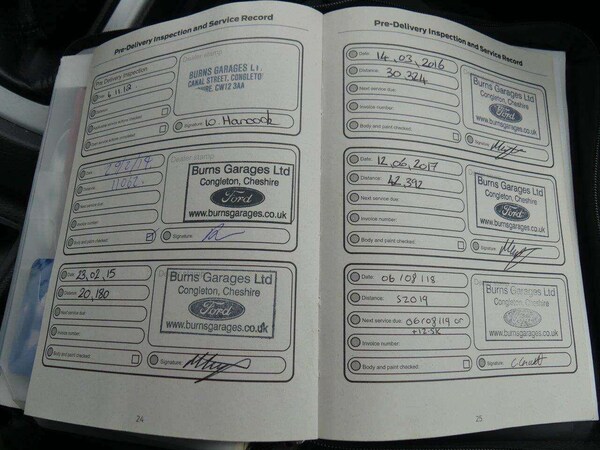 Pre-Delivery Inspection and Service Record
Pre Delivery Inspection
Dealer stamp
BURNS GARAGES LT
CANAL STREET, CONGLETO
CW12 3AA
Signature: W. Hancock
Dealer stamp
11062
Burns Garages Ltd
Congleton, Cheshire
Ford
www.burnsgarages.co.uk
Next service due:
Invoice number:
Body and paint checked:
Signature:
Date: 23.02.15
Distance: 20,180
Burns Garages Ltd
Congleton, Cheshire
Ford
www.burnsgarages.co.uk
Next service due:
Invoice number:
Body and paint checked:
Signature:
24
Pre-Delivery Inspection and Service Record
Date: 14.03.2016
Distance: 30,324
Next service due:
Invoice number:
Body and paint checked:
Burns Garages Ltd
Congleton, Cheshire
Ford
www.burnsgarages.co.uk
Signature:
Date: 12.06.2017
Distance: 42,392
Next service due:
Invoice number:
Body and paint checked:
Burns Garages Ltd
Congleton, Cheshire
Ford
www.burnsgarages.co.uk
Signature:
Date: 06/08/18
Distance: 52019
Next service due: 06/08/19 or
+12.5K
Invoice number:
Body and paint checked:
Burns Garages Ltd
Congleton, Cheshire
Ford
www.burnsgarages.co.uk
Signature:
25